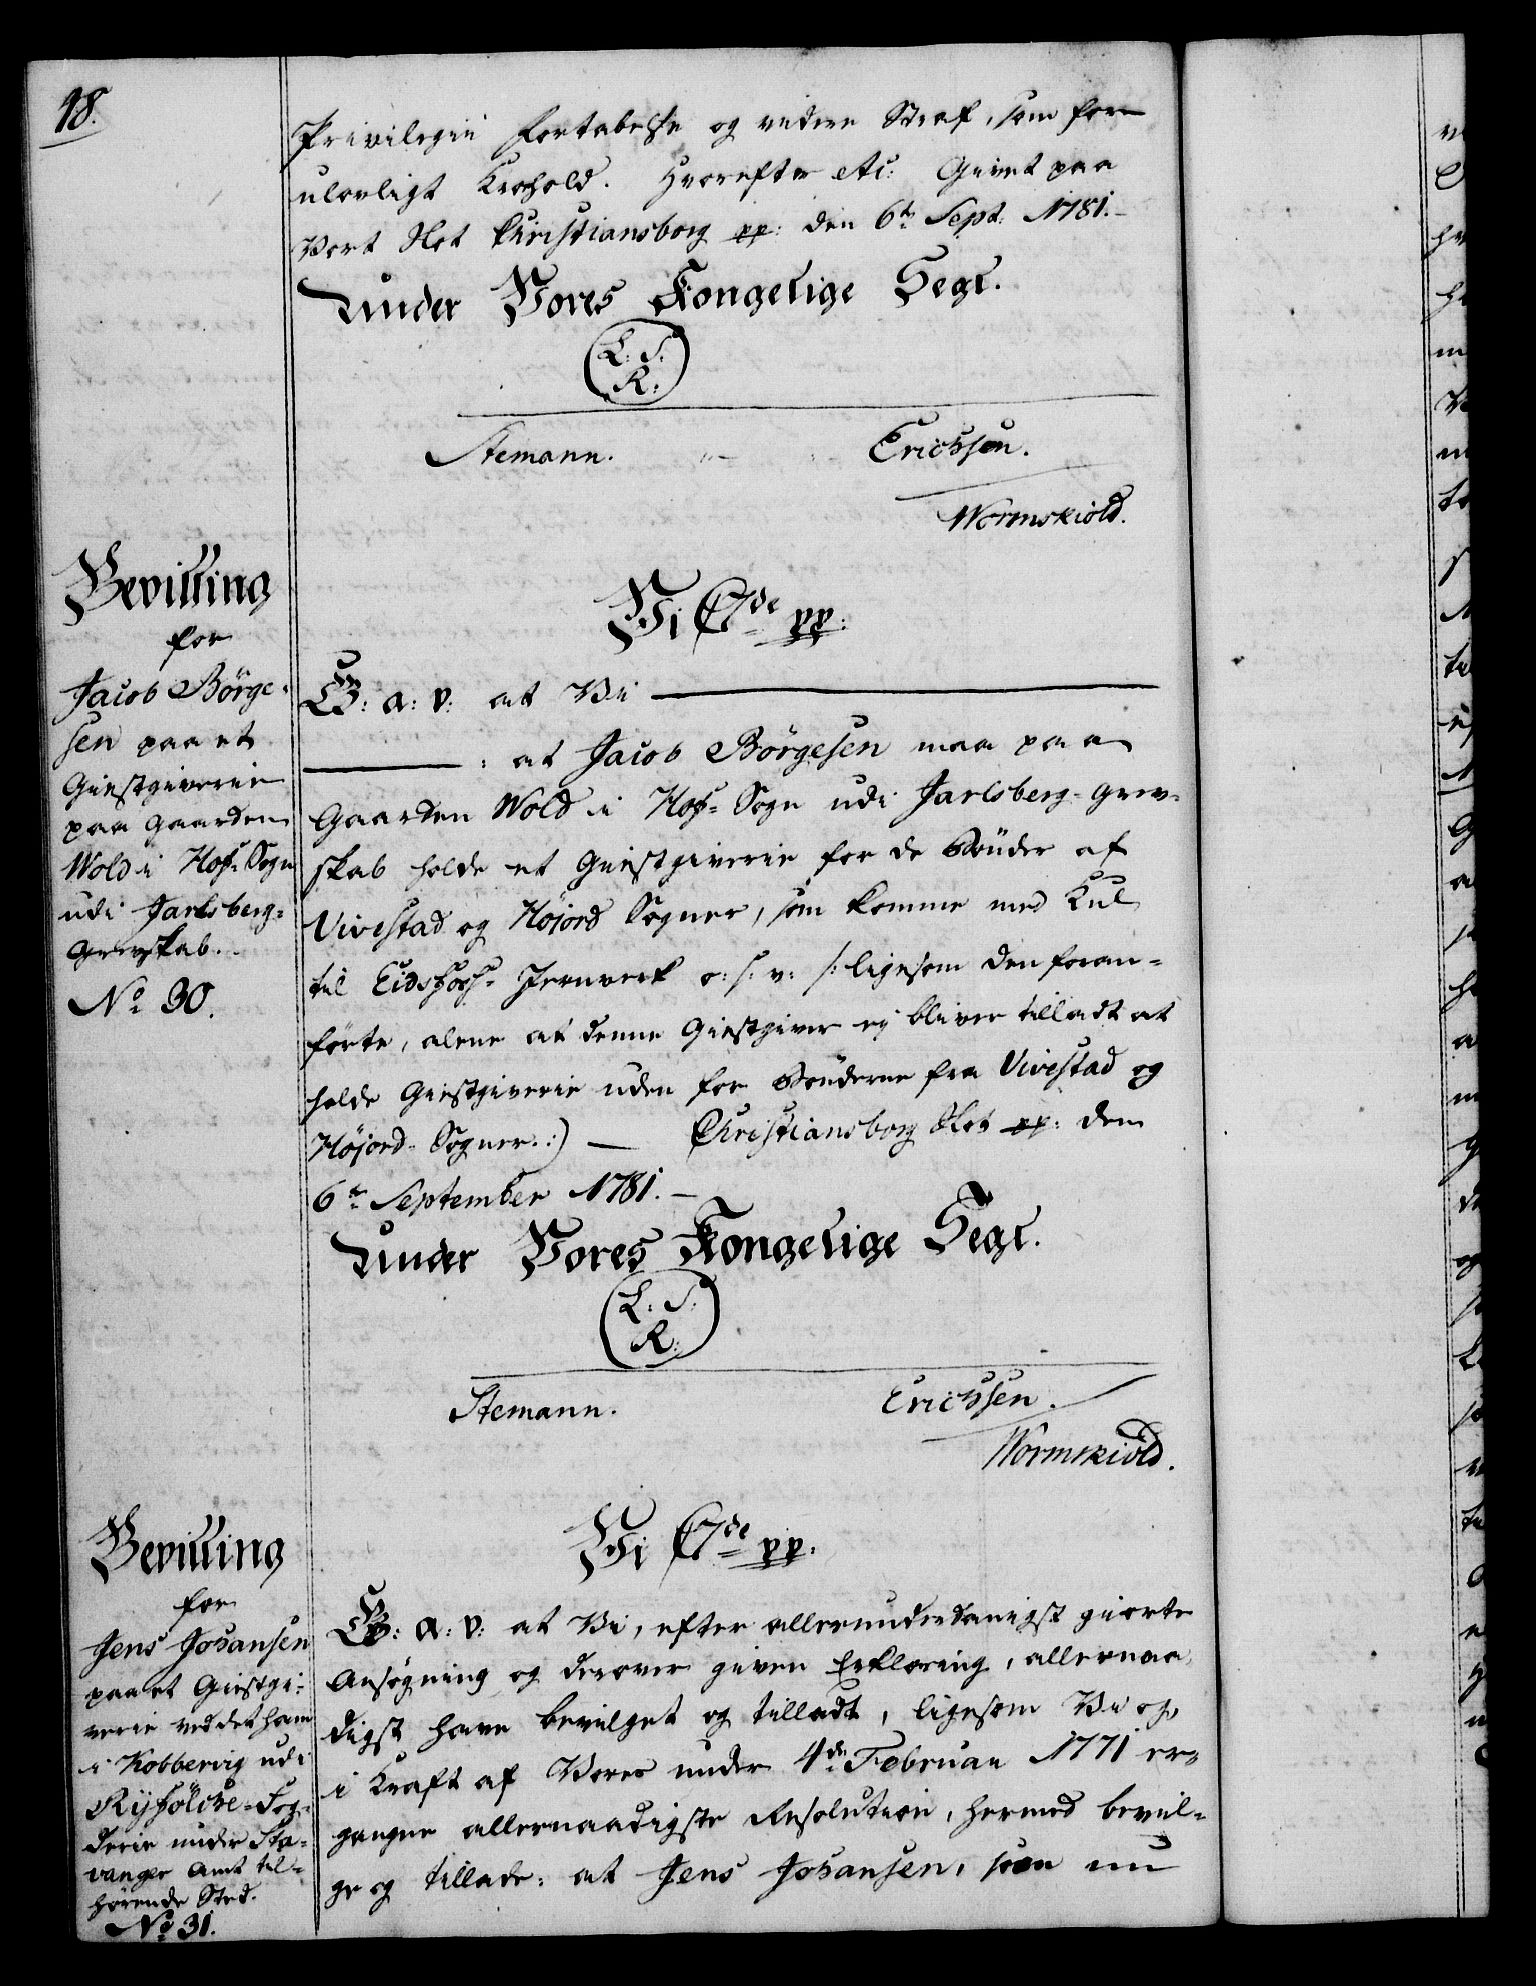 18.
Privilegii Fortabelse og videre Straf, som for
ulovligt Krohold. Hvorefter etc: Givet paa
Vort Slot Christiansborg pp: den 6te Sept. 1781.
Under Vores Kongelige Segl.
L. S.
R:
Stemann. Erichsen.
Wormskiold.
Bevilling
for
Jacob Börge-
sen paa et
Giestgiverie
paa Gaarden
Wold i Hofs Sogn
udi Jarlsberg-
Grevskab.
No 30.
Vi C7de pp:
G: a: v: at Vi
: at Jacob Börgesen maa paa
Gaarden Wold i Hofs Sogn udi Jarlsberg-Grev-
skab holde et Giestgiverie for de Bönder af
Vivestad og Höjord Sogner, som komme med Kul
til Eidsfoss- Jernverk o: s: v: /: ligesom den foran-
förte, alene at denne Giestgiver ej bliver tilladt at
holde Giestgiverie uden for Bönderne fra Vivestad og
Höjord- Sogner. :) Christiansborg Slot pp: den
6te September 1781.
Under Vores Kongelige Segl.
L. S.
R:
Stemann. Erichsen.
Wormskiold.
Bevilling
for
Jens Johansen
paa et Giestgi-
verie ved det ham
i Kobbervig udi
Ryfölcke-Fog-
derie under Sta-
vanger Amt til-
hörende Sted.
No 31.
Vi C7de pp.
G: a: v: at Vi, efter allerunderdanigst giorte
Ansögning og derover given Erklæring, allernaa-
digst have bevilget og tilladt, ligesom Vi og,
i Kraft af Vores under 4de Februarii 1771 er-
gangne allernaadigste Resolution, hermed bevil-
ge og tillade: at Jens Johansen, som nu